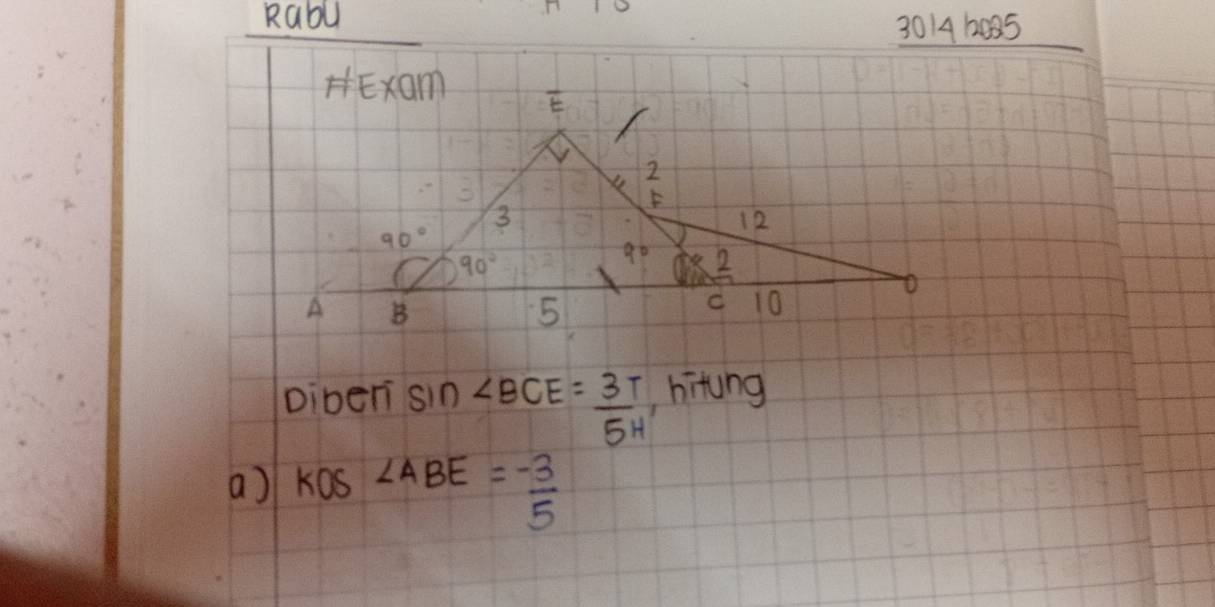 Rabu
30/4/2025
#Exam
E
2
F
3
12
90°
90°
90
2
A
B
5
C
10
D
Diberi sin ∠BCE = 3T/5H, hitung
a) kos ∠ABE = -3/5